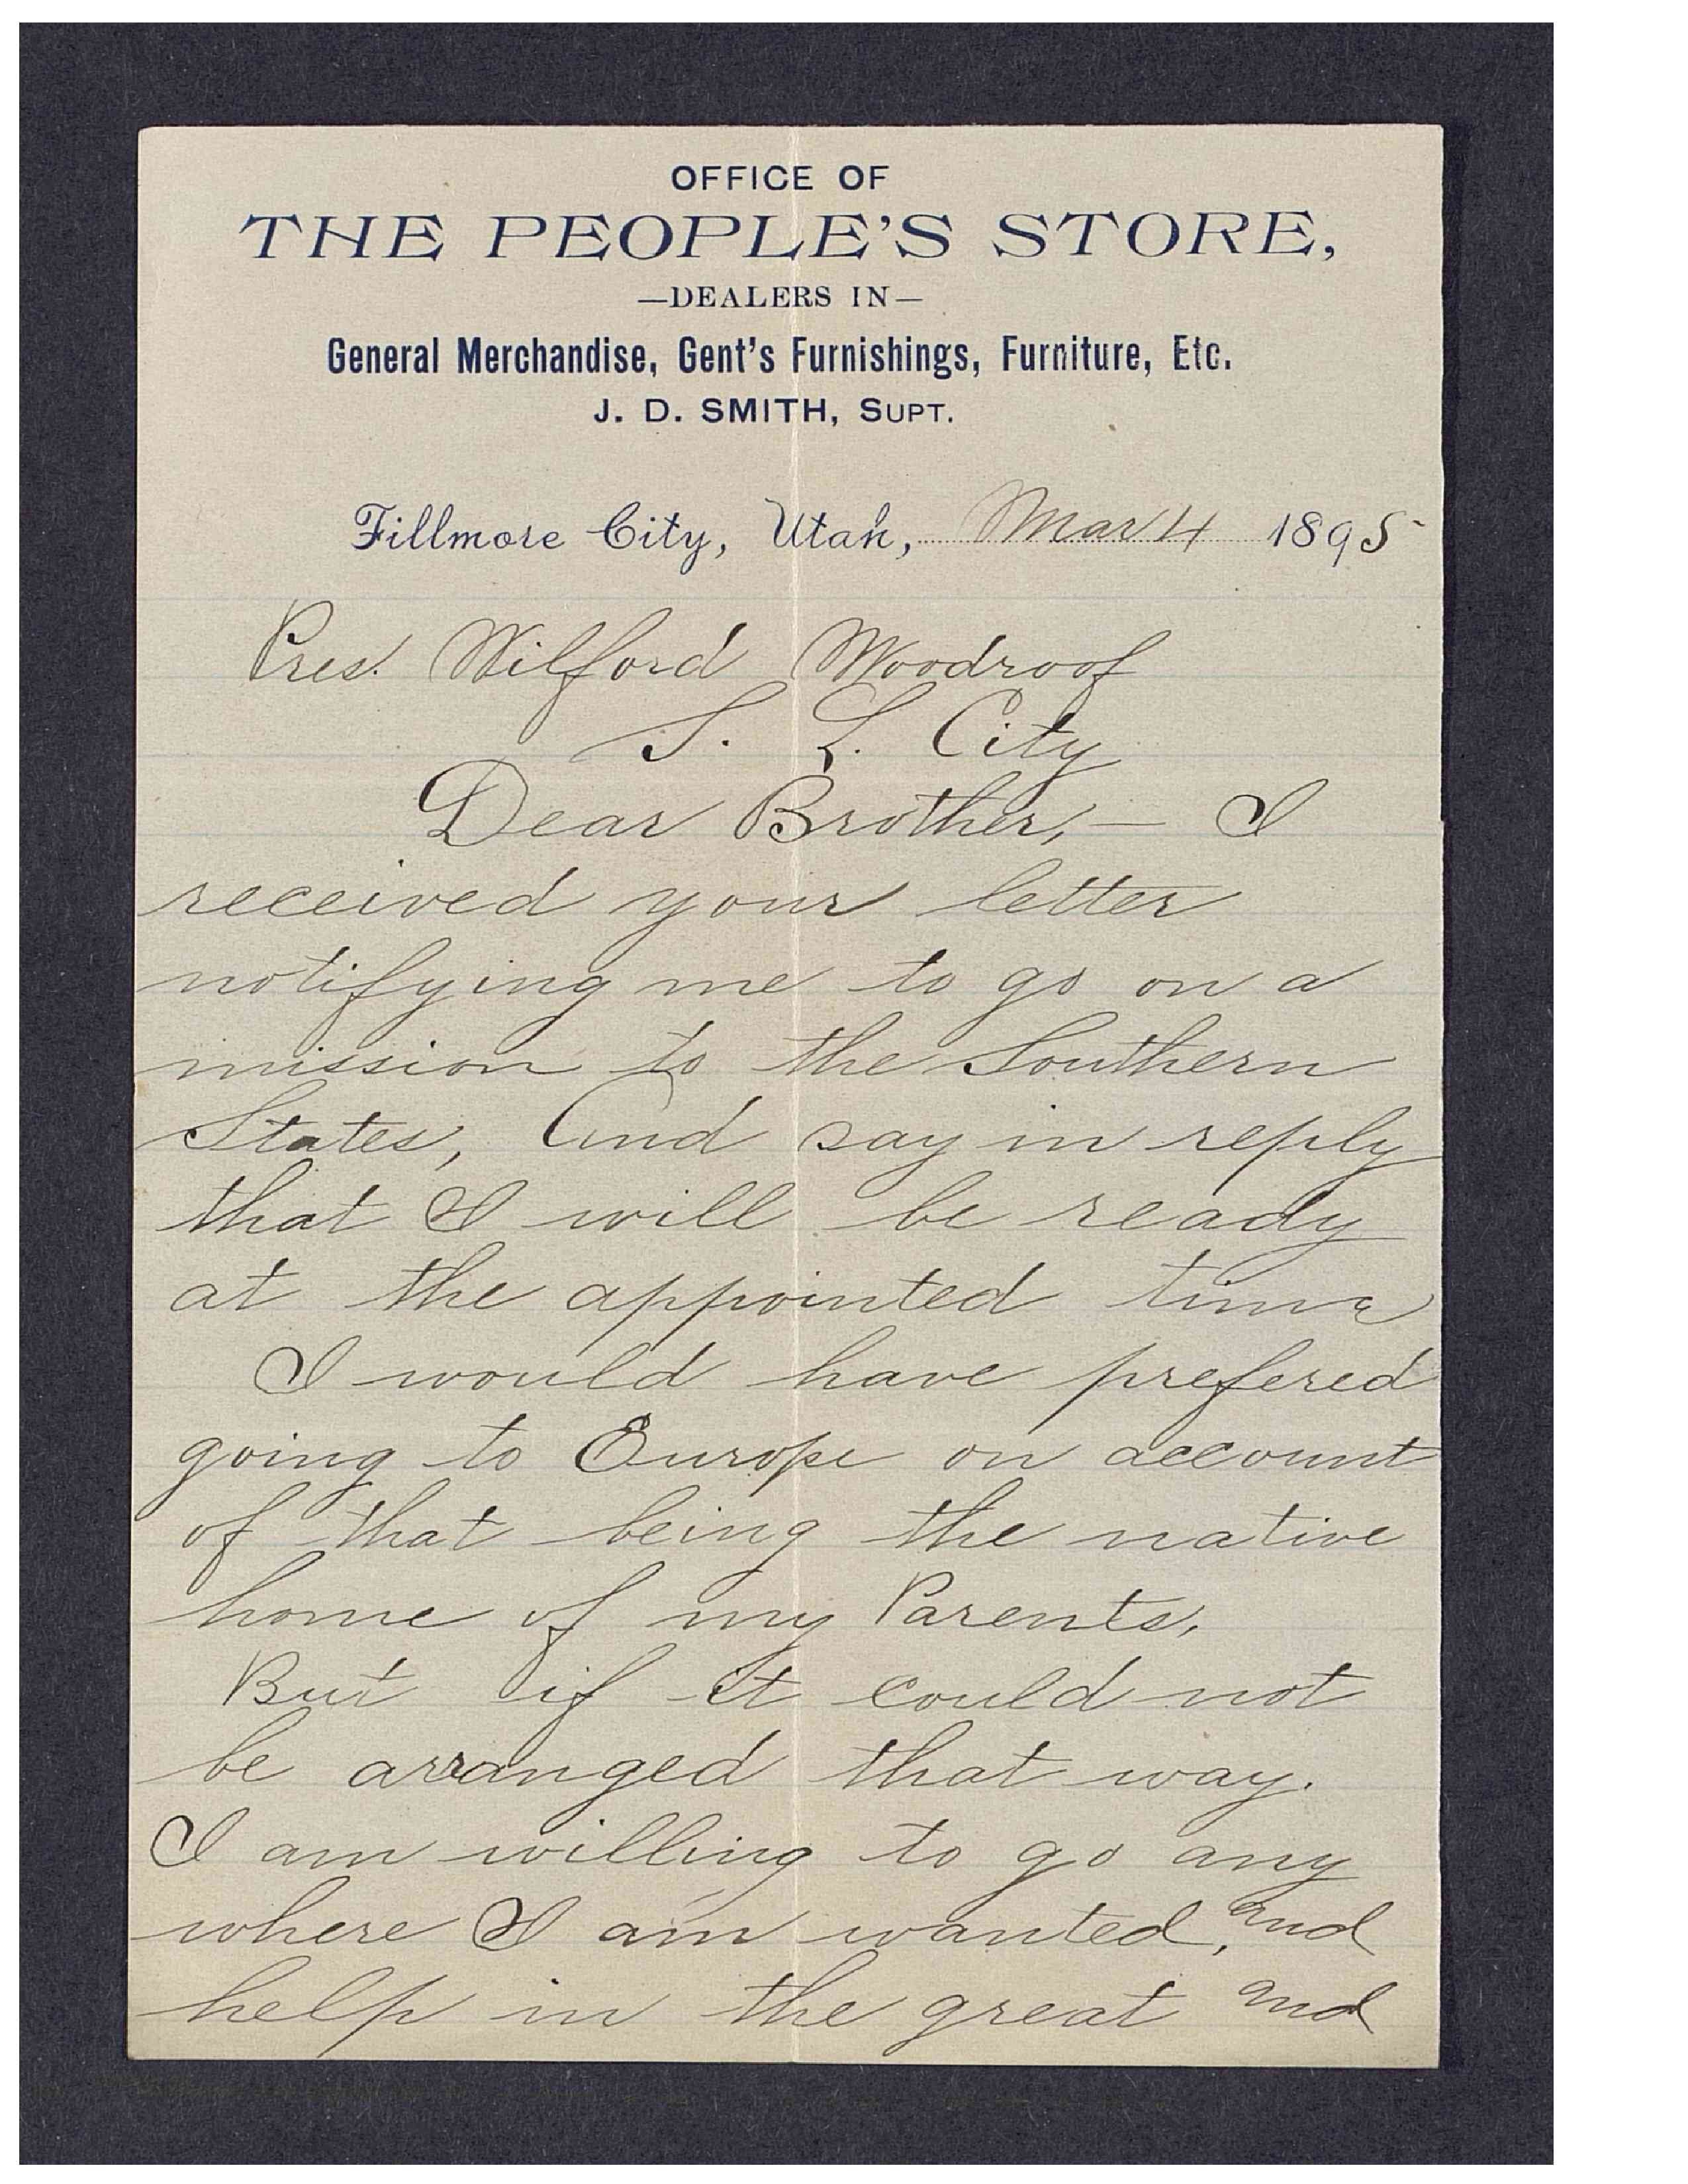 OFFICE OF
THE PEOPLE'S STORE,
—DEALERS IN—
General Merchandise, Gent's Furnishings, Furniture, Etc.
J. D. SMITH, SUPT.
Fillmore City, Utah, Mar 4 1895
Pres. Wilford Woodroof
S. L. City
Dear Brother,— I
received your letter
notifying me to go on a
mission to the Southern
States, And say in reply
that I will be ready
at the appointed time
I would have prefered
going to Europe on account
of that being the native
home of my Parents,
But if it could not
be arranged that way.
I am willing to go any
where I am wanted, and
help in the great and